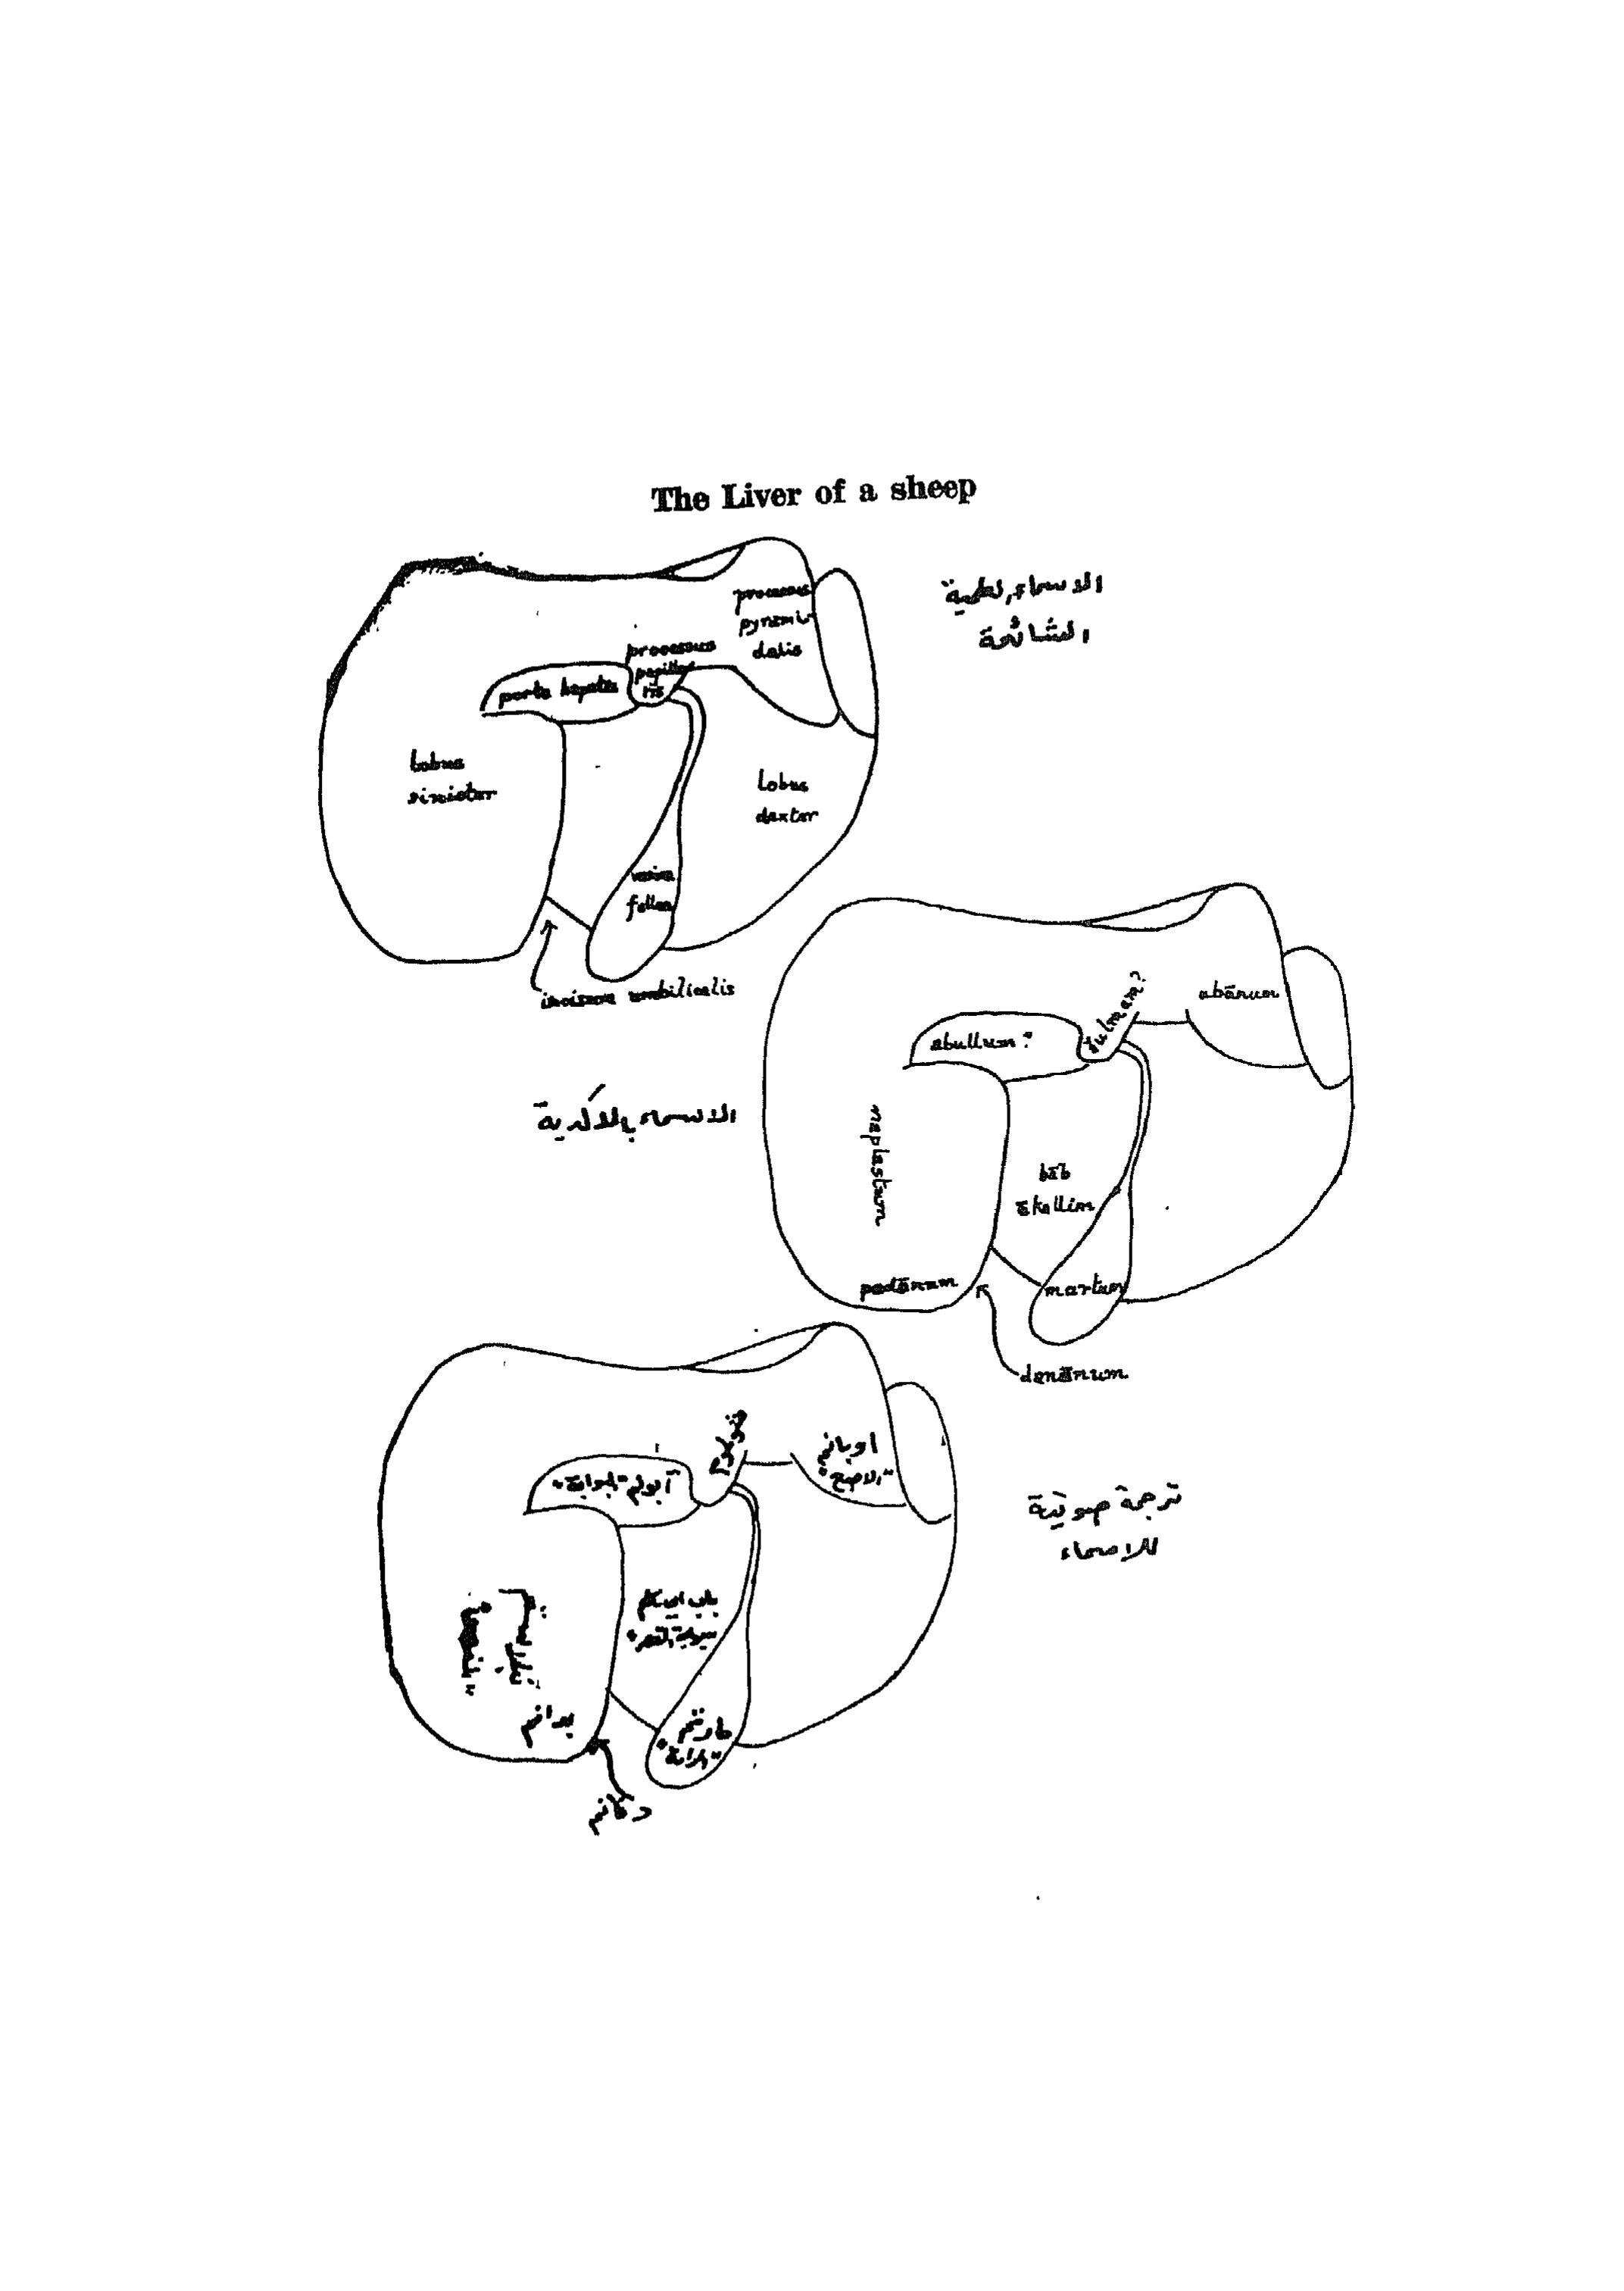 The Liver of a sheep
الاسماء العلمية
الشائعة
processus
pyrami-
dalis
processus
papilla-
ris
porta hepatis
lobus
sinister
lobus
dexter
vesica
fellea
incisura umbilicalis
الاسماء بالاكدية
ubānum
abullum?
šulmum?
naplastum
bāb
ēkallim
padānum
martum
danānum
ترجمة صوتية
للاسماء
اوبانم
"الاصبع"
آبولم "البوابة"
باب ايكلم
"بوابة القصر"
بدانم
مارتم
"المرارة"
دنانم